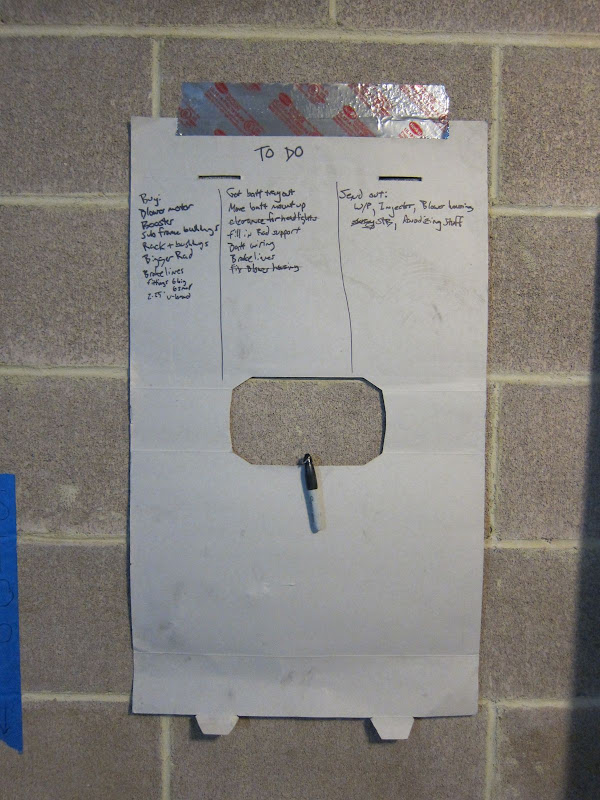 TO DO
Buy:
Blower motor
Booster
Sub frame bushings
Rack + bushings
Bigger Rad
Brake lines
fittings 6 big
6 small
2.25" u-bend
Get batt tray out
Move batt mount up
clearance for headlights
fill in Rad support
Batt wiring
Brake lines
fix Blower housing
Send out:
W/P, Injector, Blower housing
Anodizing stuff